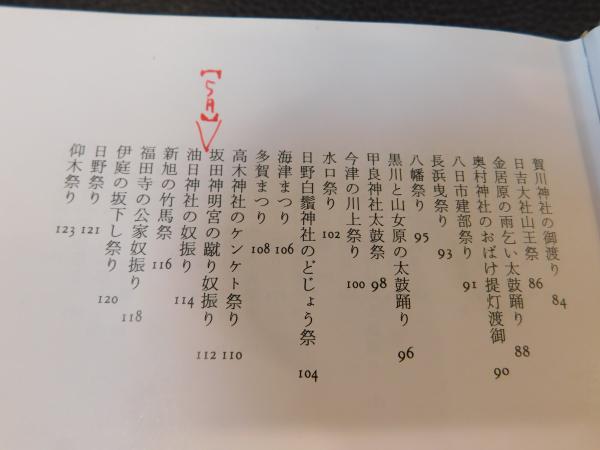 賀川神社の御渡り 84
日吉大社山王祭 86
金居原の雨乞い太鼓踊り 88
奥村神社のおばけ提灯渡御 90
八日市建部祭り 91
長浜曳祭り 93
八幡祭り 95
黒川と山女原の太鼓踊り 96
甲良神社太鼓祭 98
今津の川上祭り 100
水口祭り 102
日野白鬚神社のどじょう祭 104
海津まつり 106
多賀まつり 108
高木神社のケンケト祭り 110
【5月】
坂田神明宮の蹴り奴振り 112
油日神社の奴振り 114
新旭の竹馬祭 116
福田寺の公家奴振り 118
伊庭の坂下し祭り 120
日野祭り 121
仰木祭り 123